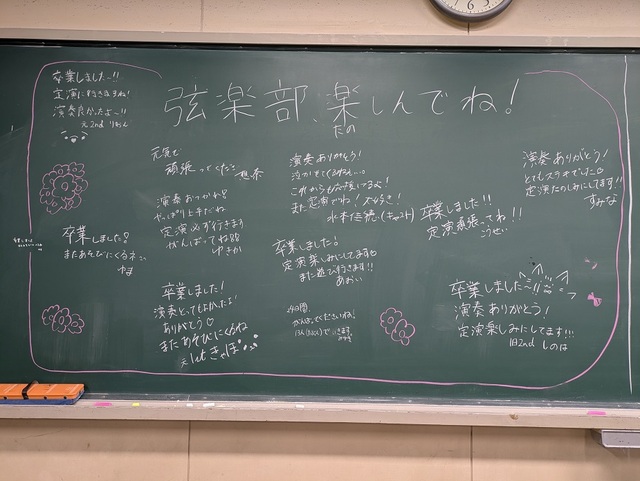 弦楽部、楽しんでね!
たの
卒業しました~!!
定演に行きますね!
演奏良かったよ~!!
元2nd りおん
元気で
頑張ってください
演奏おつかれ!
やっぱり上手だね
定演必ず行きます
がんばってね
ゆきか
演奏ありがとう!
これからも
また定演でね!大好き!
卒業しました!!
定演頑張ってね!!
こうせい
演奏ありがとう!
とてもステキでした
定演たのしみにしてます!!
すみな
卒業しました!
またあそびにくるネ
ゆま
卒業しました。
定演楽しみにしてます
また遊び行きます!!
あおい
卒業しました!
演奏とってもよかったよ!
ありがとう♡
またあそびにくるね
元1st きっぽ
卒業しました
演奏ありがとう!
定演楽しみにしてます!!!
旧2nd しのは